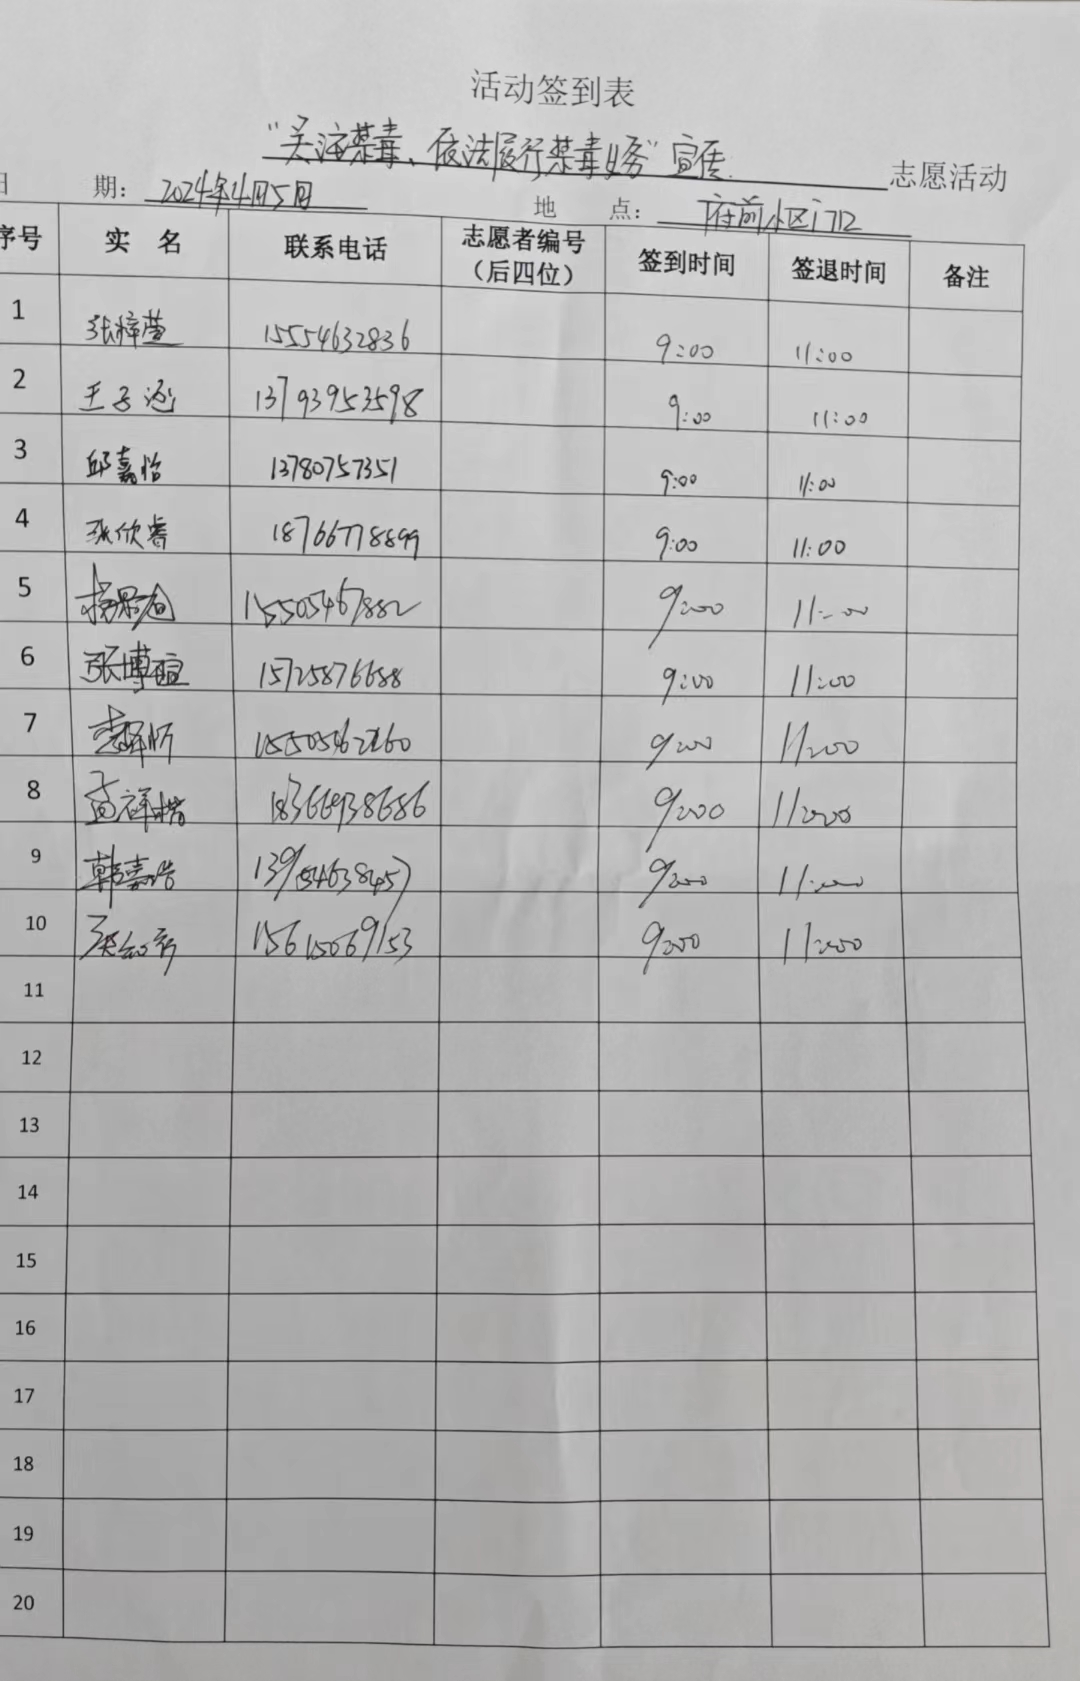 活动签到表
"关注禁毒、依法履行禁毒义务"宣传 志愿活动
日 期：2024年4月5日 地 点：府前小区门口
序号 实 名 联系电话 志愿者编号（后四位） 签到时间 签退时间 备注
1 张梓萱 15554632836 9:00 11:00
2 王子涵 13793953598 9:00 11:00
3 邱嘉怡 13780757351 9:00 11:00
4 张欣睿 18766778899 9:00 11:00
5 15505467882 9:00 11:00
6 张博 15725876688 9:00 11:00
7 9:00 11:00
8 孟祥楷 18366938686 9:00 11:00
9 韩嘉浩 13954638457 9:00 11:00
10 15615069153 9:00 11:00
11
12
13
14
15
16
17
18
19
20